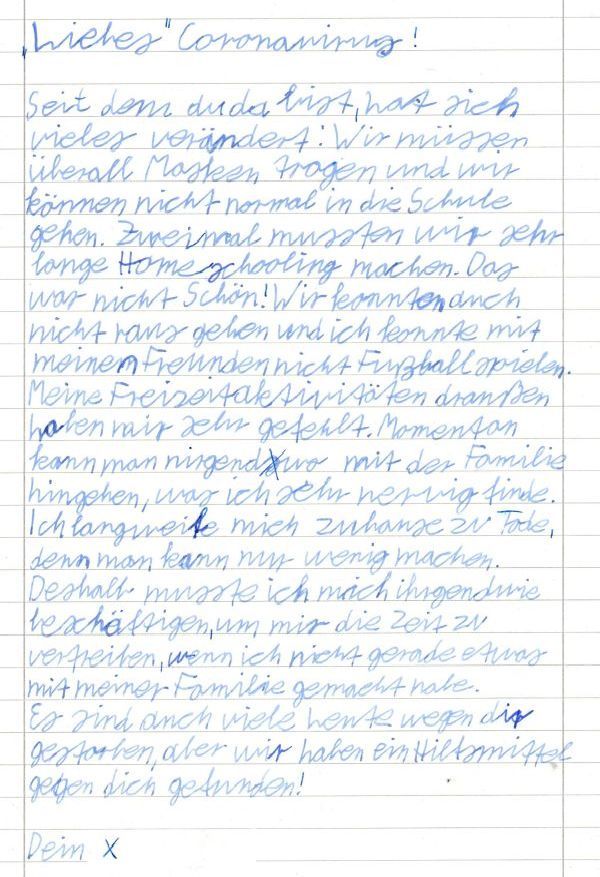 „Liebes" Coronavirus!
Seit dem du da bist, hat sich
vieles verändert! Wir müssen
überall Masken tragen und wir
können nicht normal in die Schule
gehen. Zweimal mussten wir sehr
lange Homeschooling machen. Das
war nicht Schön! Wir konnten auch
nicht raus gehen und ich konnte mit
meinen Freunden nicht Fußball spielen.
Meine Freizeitaktivitäten draußen
haben mir sehr gefehlt. Momentan
kann man nirgendswo mit der Familie
hingehen, was ich sehr nervig finde.
Ich langweile mich zuhause zu Tode,
denn man kann nur wenig machen.
Deshalb musste ich mich ihrgendwie
beschäftigen, um mir die Zeit zu
vertreiben, wenn ich nicht gerade etwas
mit meiner Familie gemacht habe.
Es sind auch viele Leute wegen dir
gestorben, aber wir haben ein Hilfsmittel
gegen dich gefunden!
Dein X